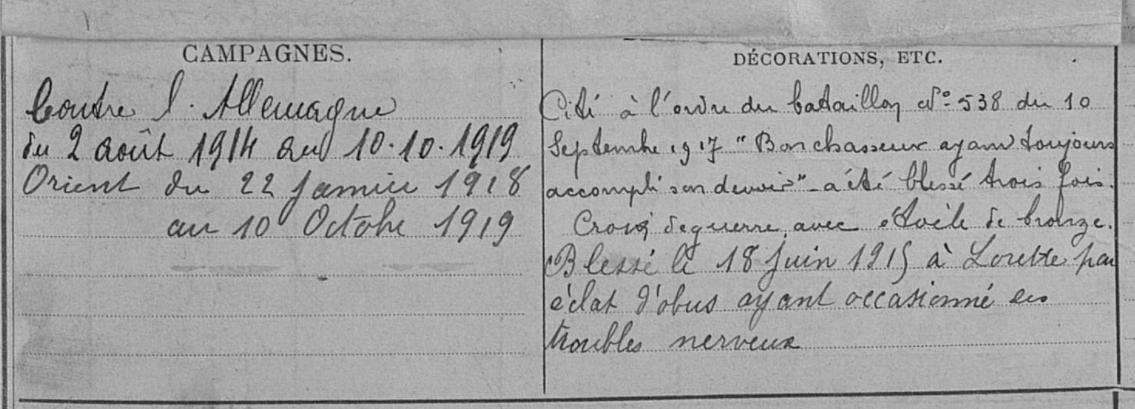 CAMPAGNES.
Contre l'Allemagne
du 2 août 1914 au 10.10.1919
Orient du 22 Janvier 1918
au 10 Octobre 1919
DÉCORATIONS, ETC.
Cité à l'ordre du bataillon No 538 du 10
Septembre 1917 "Bon chasseur ayant toujours
accompli son devoir" - a été blessé trois fois.
Croix de guerre avec étoile de bronze.
Blessé le 18 Juin 1915 à Lorette par
éclat d'obus ayant occasionné des
troubles nerveux